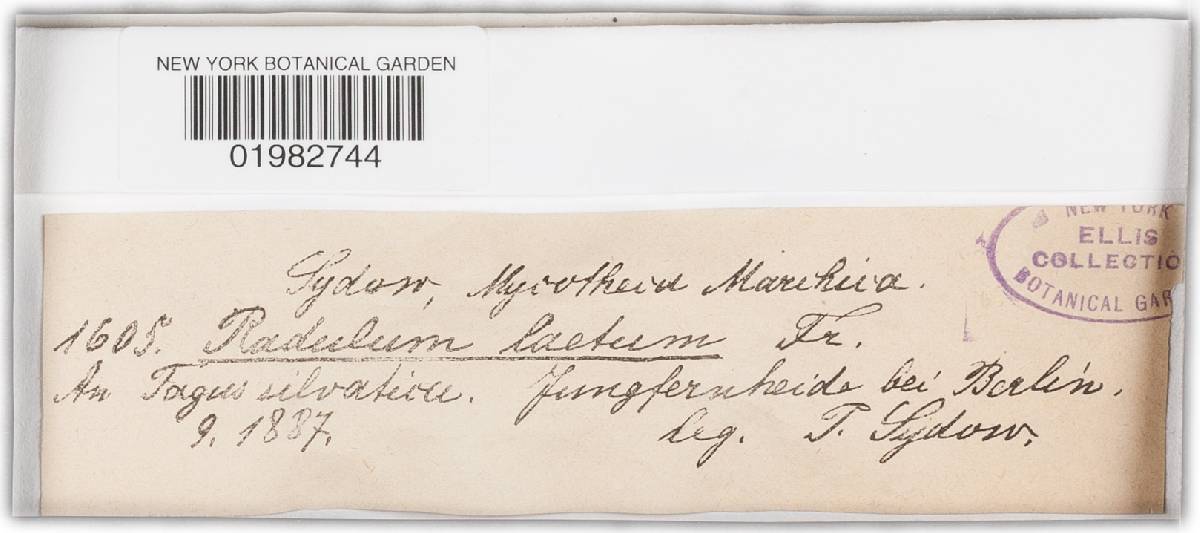 NEW YORK BOTANICAL GARDEN
01982744
NEW YORK
ELLIS
COLLECTIO
BOTANICAL GAR
Sydow, Mycotheca Marchica.
1605. Radulum laetum Fr.
An Fagus silvatica. Jungfernheide bei Berlin.
9. 1887. leg. P. Sydow.